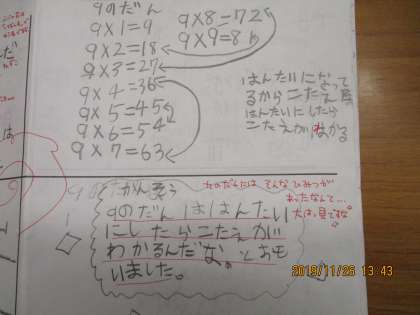 9のだん
9×1=9
9×2=18
9×3=27
9×4=36
9×5=45
9×6=54
9×7=63
9×8=72
9×9=81
はんたいになって
るからこたえ
はんたいにしたら
こたえがわかる
かんそう
九のだんには そんなひみつが
あったなんて…
大はっ見ですね。
9のだんははんたい
にしたらこたえが
わかるんだな。とおも
いました。
2019/11/26 13:43